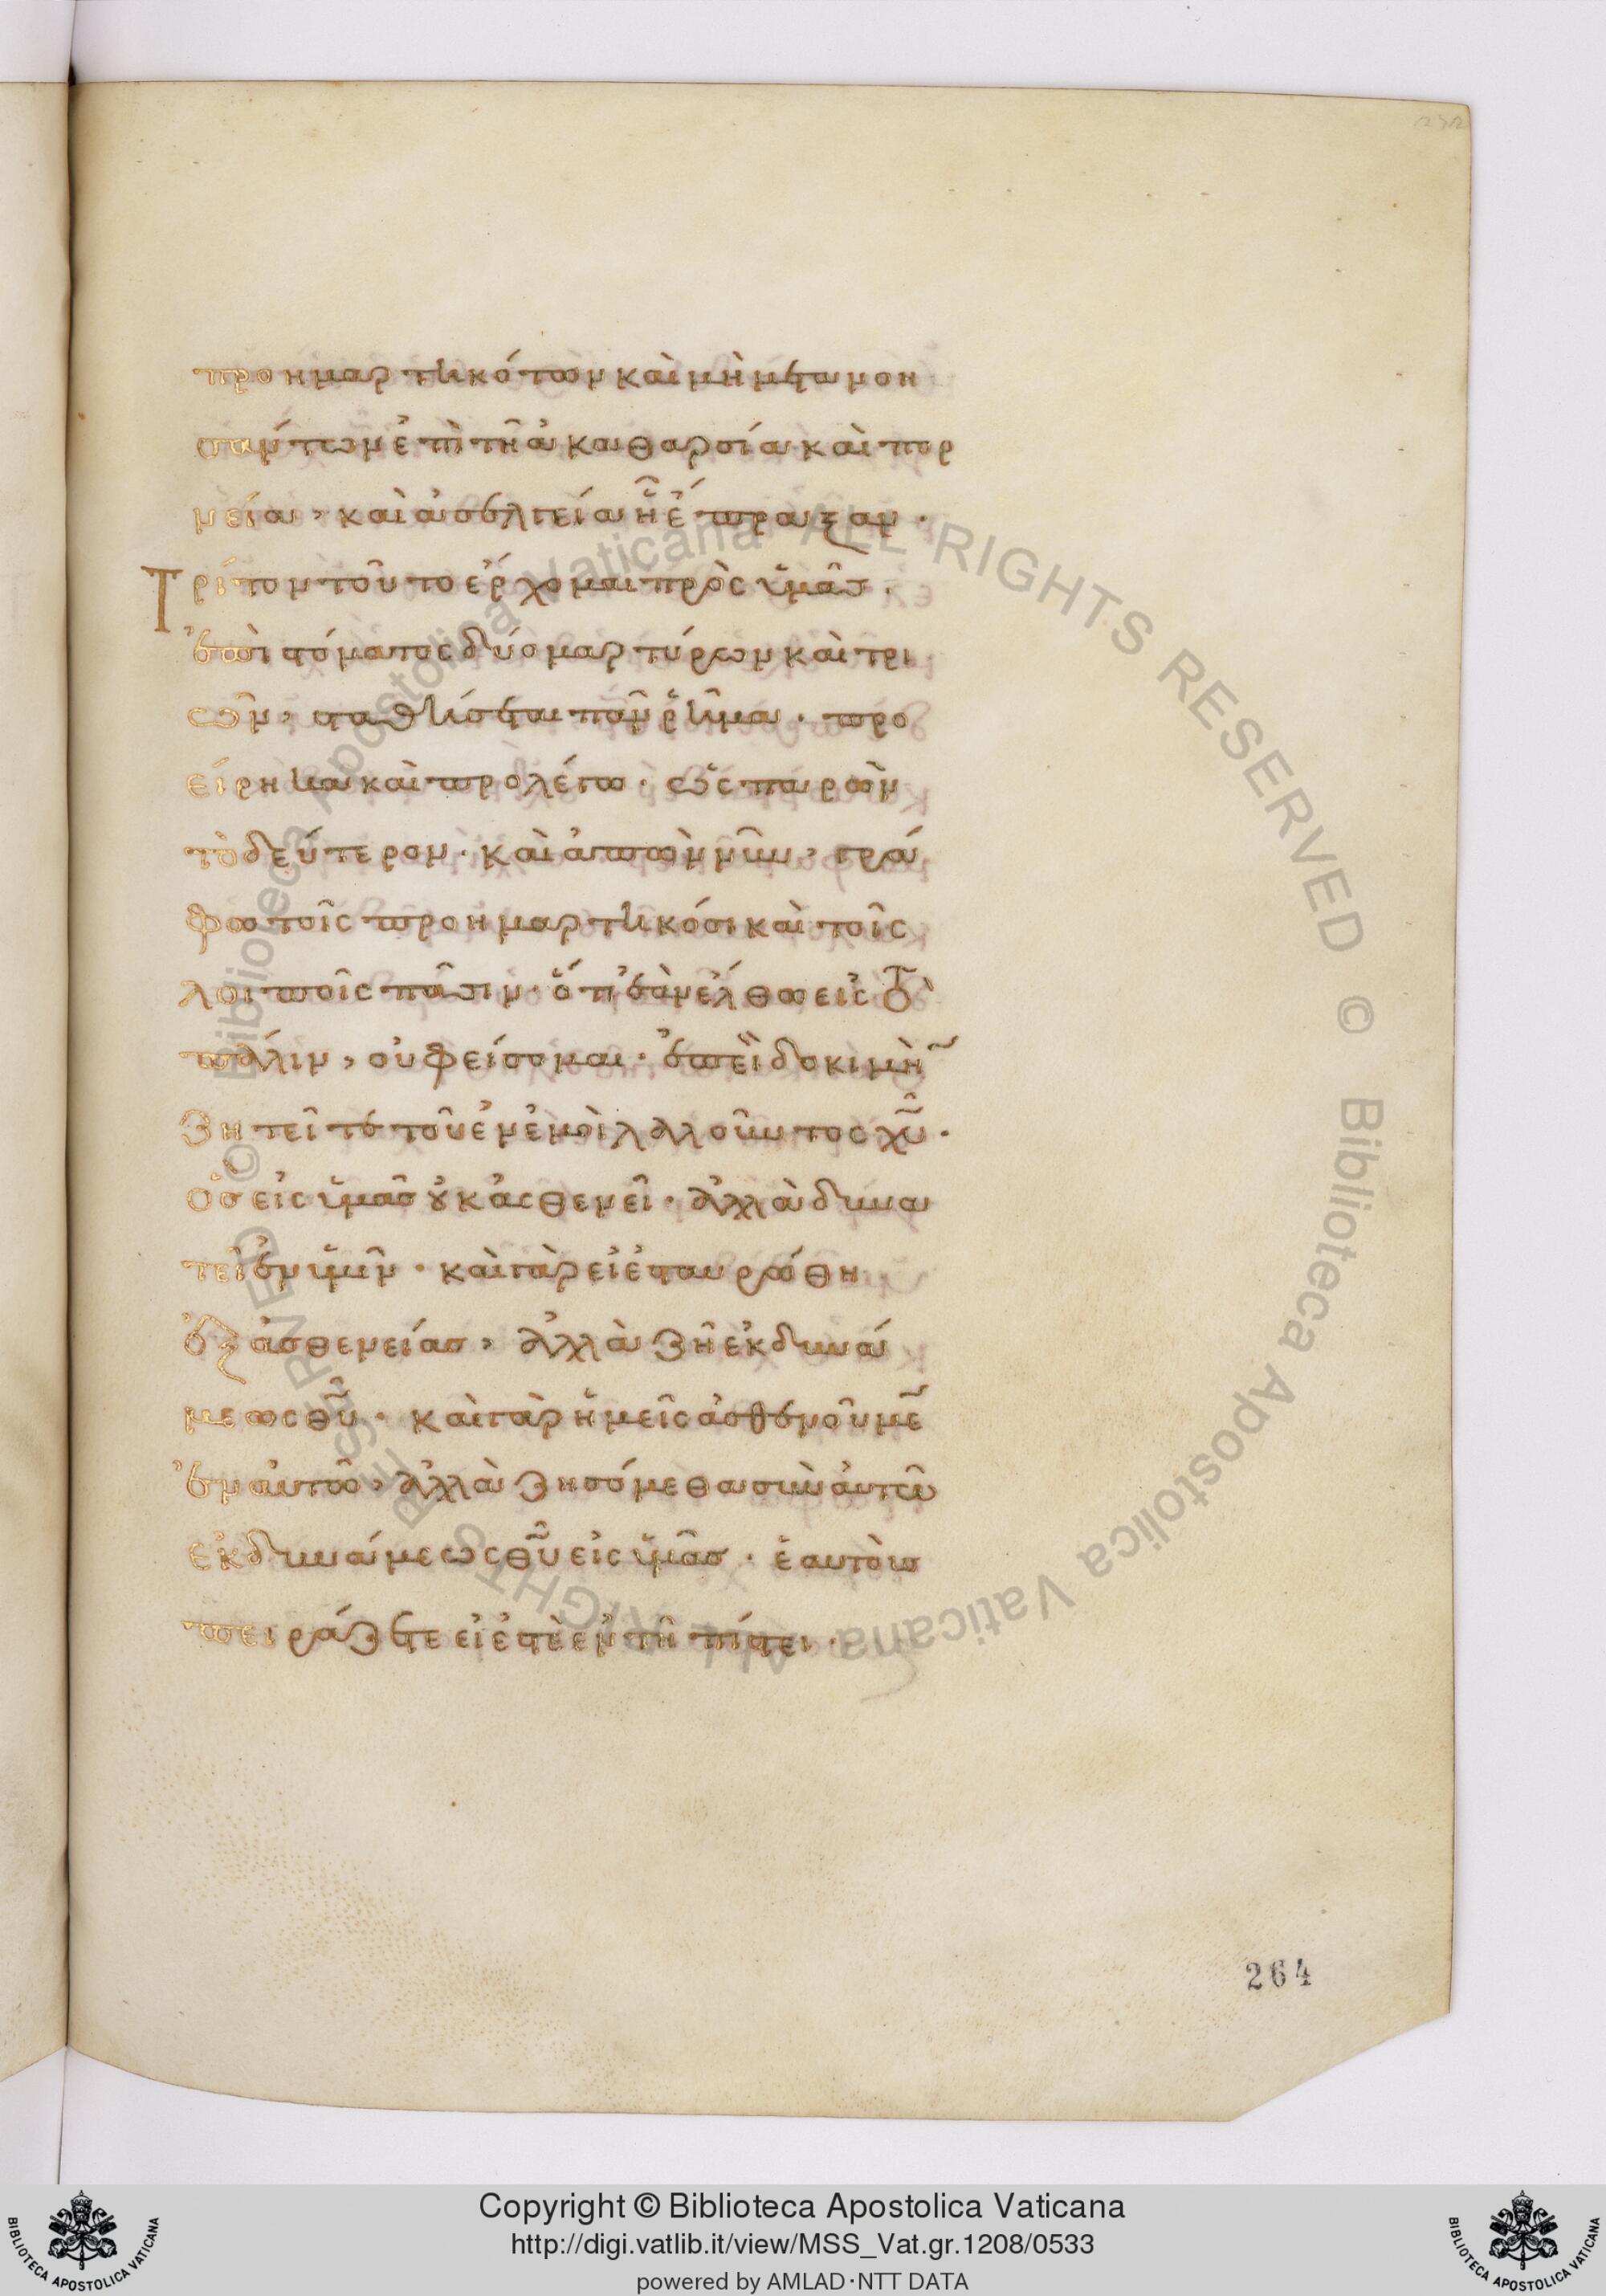 προημαρτηκότων καὶ μὴ μετανοη
σάντων ἐπὶ τῆ ἀκαθαρσία καὶ πορ
νεία, καὶ ἀσελγεία ἧ ἔπραξαν.
Τρίτον τοῦτο ἔρχομαι πρὸς ὑμᾶς.
ἐπὶ στόματος δύο μαρτύρων καὶ τρι
ῶν, σταθήσεται πᾶν ῥῆμα. προ
είρηκα καὶ προλέγω. ὡς παρὼν
τὸ δεύτερον. καὶ ἀπὼν νῦν, γρά
φω τοῖς προημαρτηκόσι καὶ τοῖς
λοιποῖς πᾶσιν. ὅτι ἐὰν ἔλθω εἰς τὸ
πάλιν, οὐ φείσομαι. ἐπεὶ δοκιμὴν
ζητεῖτε τοῦ ἐν ἐμοὶ λαλοῦντος χυ.
ὃς εἰς ὑμᾶς οὐκ ἀσθενεῖ. ἀλλὰ δυνα
τεῖ ἐν ὑμῖν. καὶ γὰρ εἰ ἐσταυρώθη
ἐξ ἀσθενείας, ἀλλὰ ζῆ ἐκ δυνά
μεως θυ. καὶ γὰρ ἡμεῖς ἀσθενοῦμεν
ἐν αὐτῶ, ἀλλὰ ζησόμεθα σὺν αὐτῶ
ἐκ δυνάμεως θυ εἰς ὑμᾶς. ἑαυτοὺς
πειράζετε εἰ ἐστὲ ἐν τῆ πίστει.
264
Copyright © Biblioteca Apostolica Vaticana
http://digi.vatlib.it/view/MSS_Vat.gr.1208/0533
powered by AMLAD·NTT DATA
BIBLIOTECA APOSTOLICA VATICANA
BIBLIOTECA APOSTOLICA VATICANA
© Biblioteca Apostolica Vaticana ALL RIGHTS RESERVED © Biblioteca Apostolica Vaticana ALL RIGHTS RESERVED